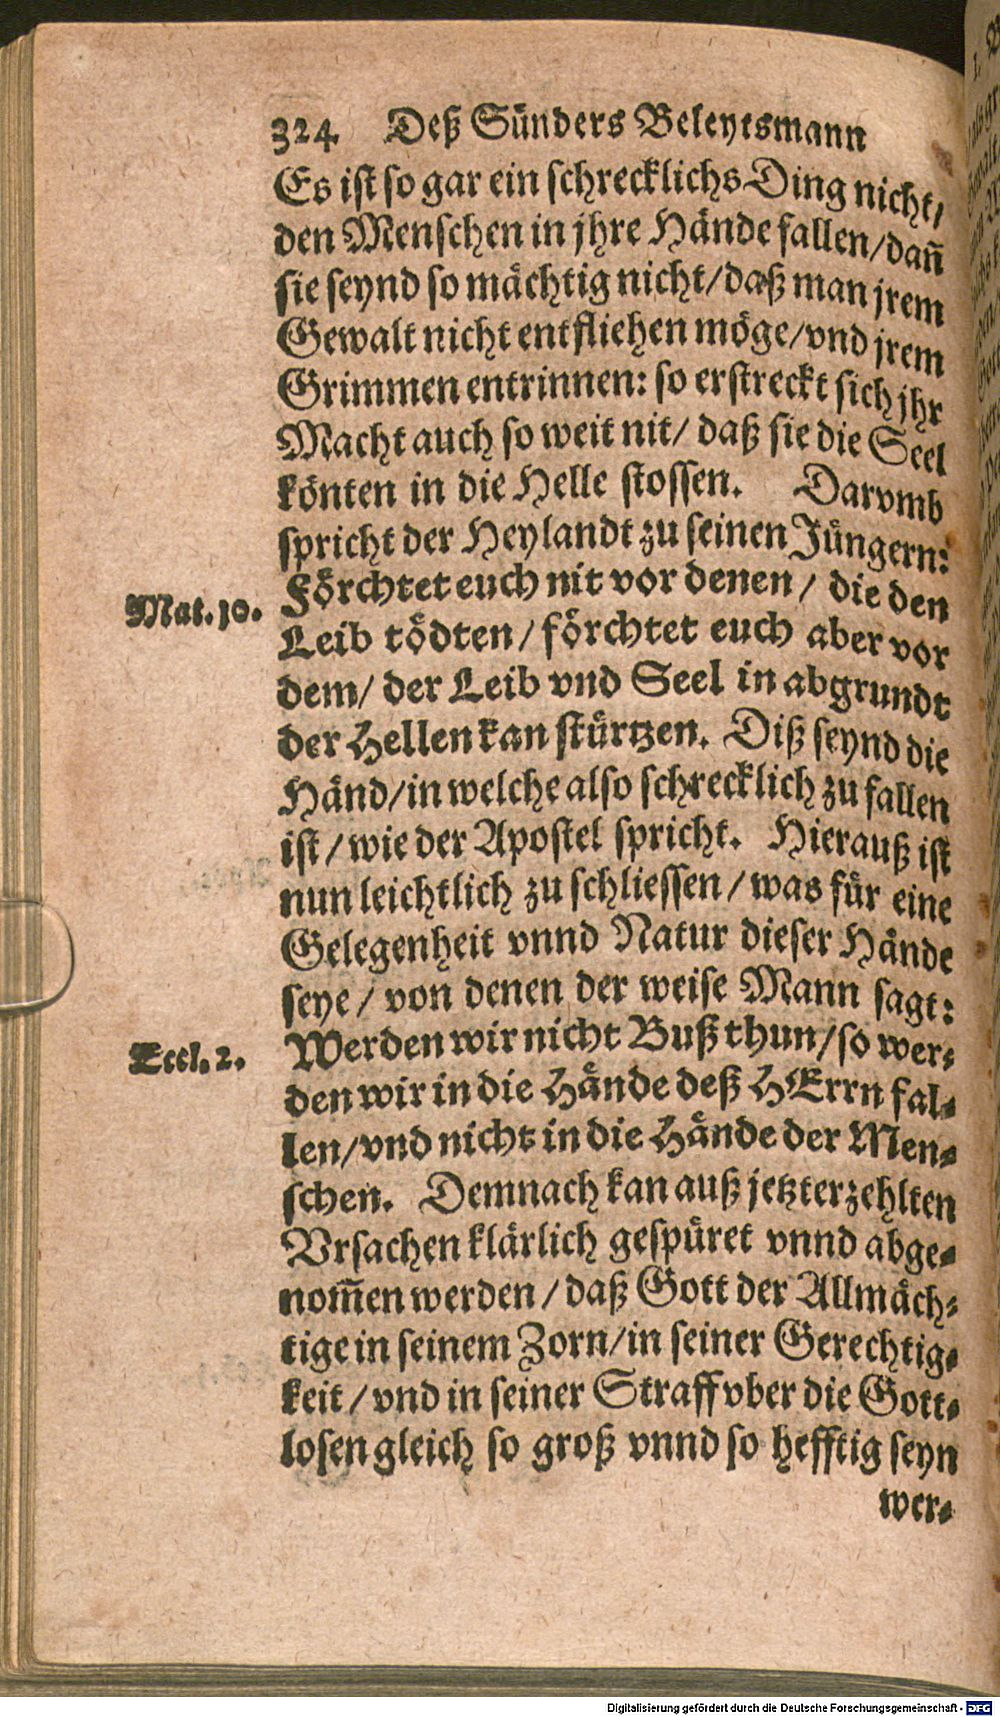 324 Deß Sünders Beleytsmann
Es ist so gar ein schrecklichs Ding nicht/
den Menschen in jhre Hände fallen/dañ
sie seynd so mächtig nicht/daß man jrem
Gewalt nicht entfliehen möge/vnd jrem
Grimmen entrinnen: so erstreckt sich jhr
Macht auch so weit nit/ daß sie die Seel
könten in die Helle stossen. Darvmb
spricht der Heylandt zu seinen Jüngern:
Mat. 10. Förchtet euch nit vor denen / die den
Leib tödten / förchtet euch aber vor
dem/ der Leib vnd Seel in abgrundt
der Hellen kan stürtzen. Diß seynd die
Händ/in welche also schrecklich zu fallen
ist / wie der Apostel spricht. Hierauß ist
nun leichtlich zu schliessen / was für eine
Gelegenheit vnnd Natur dieser Hände
seye / von denen der weise Mann sagt:
Eccl. 2. Werden wir nicht Buß thun/so wer-
den wir in die Hände deß HErrn fal-
len/vnd nicht in die Hände der Men-
schen. Demnach kan auß jetzterzehlten
Vrsachen klärlich gespüret vnnd abge-
nom̃en werden / daß Gott der Allmäch-
tige in seinem Zorn/in seiner Gerechtig-
keit / vnd in seiner Straff vber die Gott-
losen gleich so groß vnnd so hefftig seyn
wer-
Digitalisierung gefördert durch die Deutsche Forschungsgemeinschaft - DFG